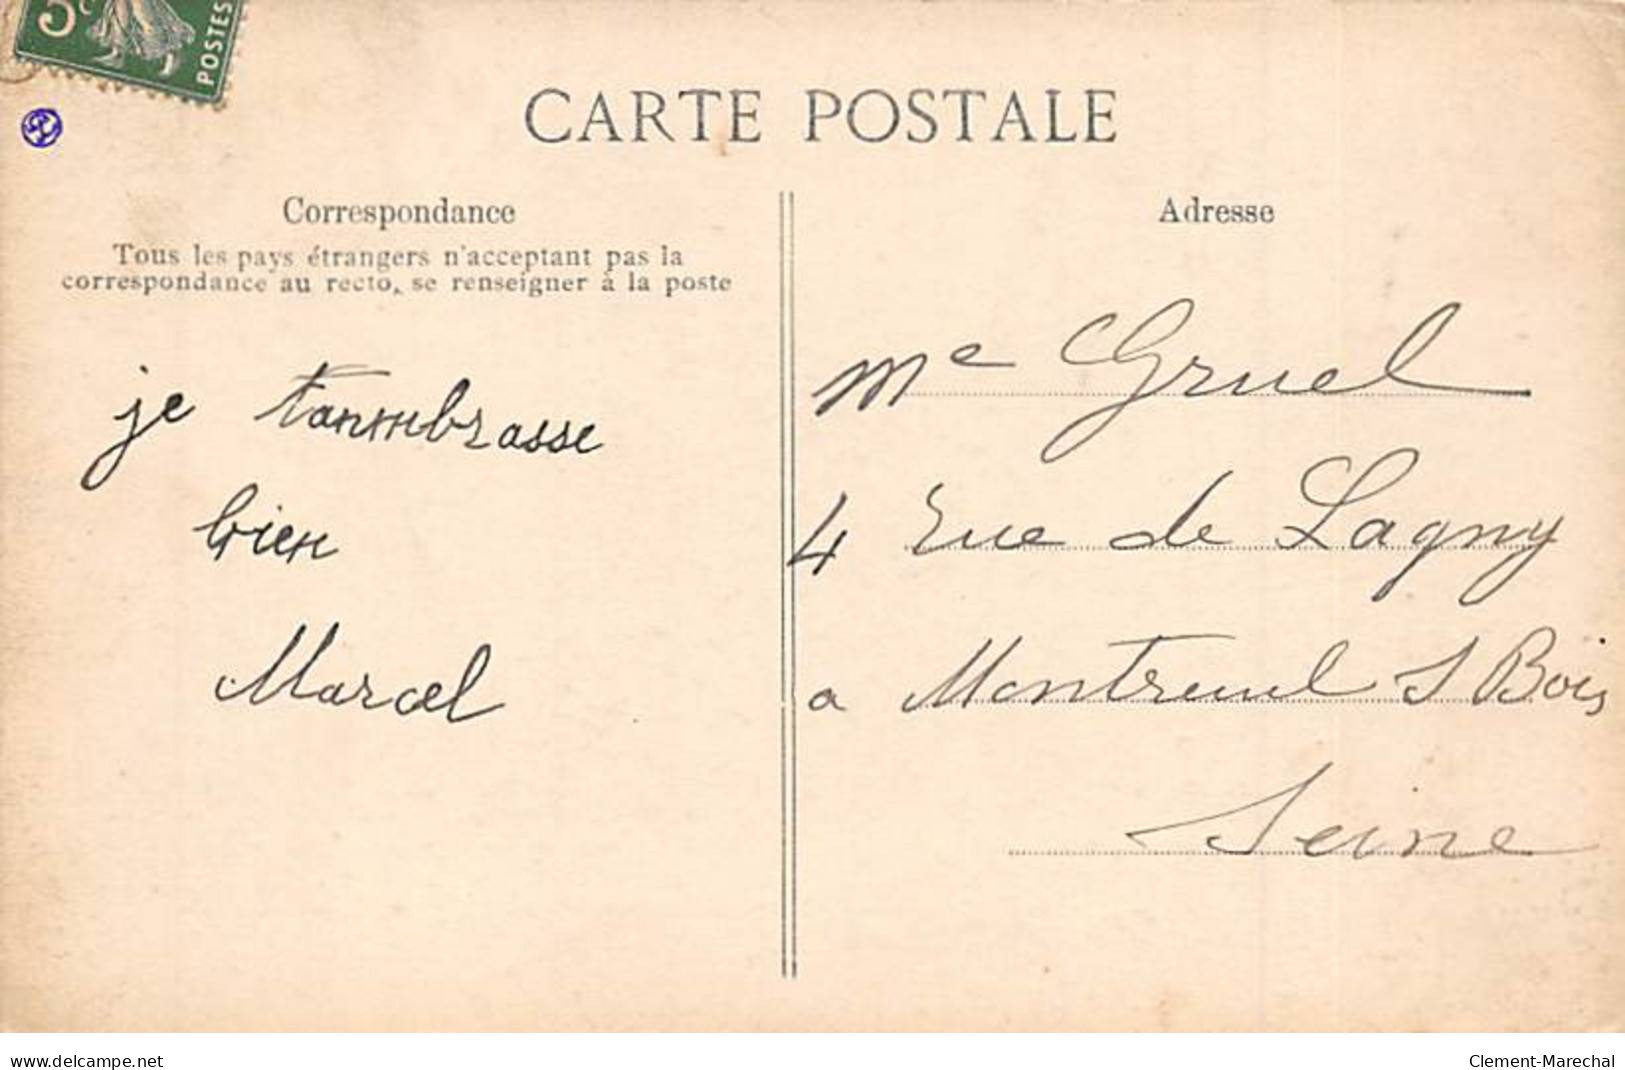 5c
POSTES
CARTE POSTALE
Correspondance
Tous les pays étrangers n'acceptant pas la
correspondance au recto, se renseigner à la poste
je tanmbrasse
bien
Marcel
Adresse
Me Gruel
4 Rue de Lagny
a Montreuil S Bois
Seine
www.delcampe.net
Clement-Marechal